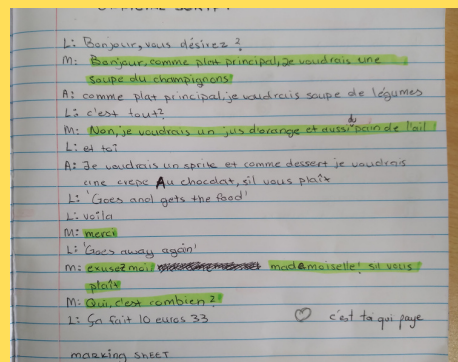 L: Bonjour, vous désirez ?
M: Bonjour, comme plat principal, Je voudrais une
soupe du champignons!
A: comme plat principal, je voudrais soupe de légumes
L: c'est tout?
M: Non, je voudrais un jus d'orange et aussi du pain de l'ail !
L: et toi
A: Je voudrais un sprite et comme dessert je voudrais
une crepe Au chocolat, sil vous plaît
L: 'Goes and gets the food'
L: voila
M: merci
L: 'Goes away again'
M: exusez moi mademoiselle! sil vous
plaît
M: Oui, c'est combien ?
L: Ça fait 10 euros 33 ♡ c'est toi qui paye
MARKING SHEET